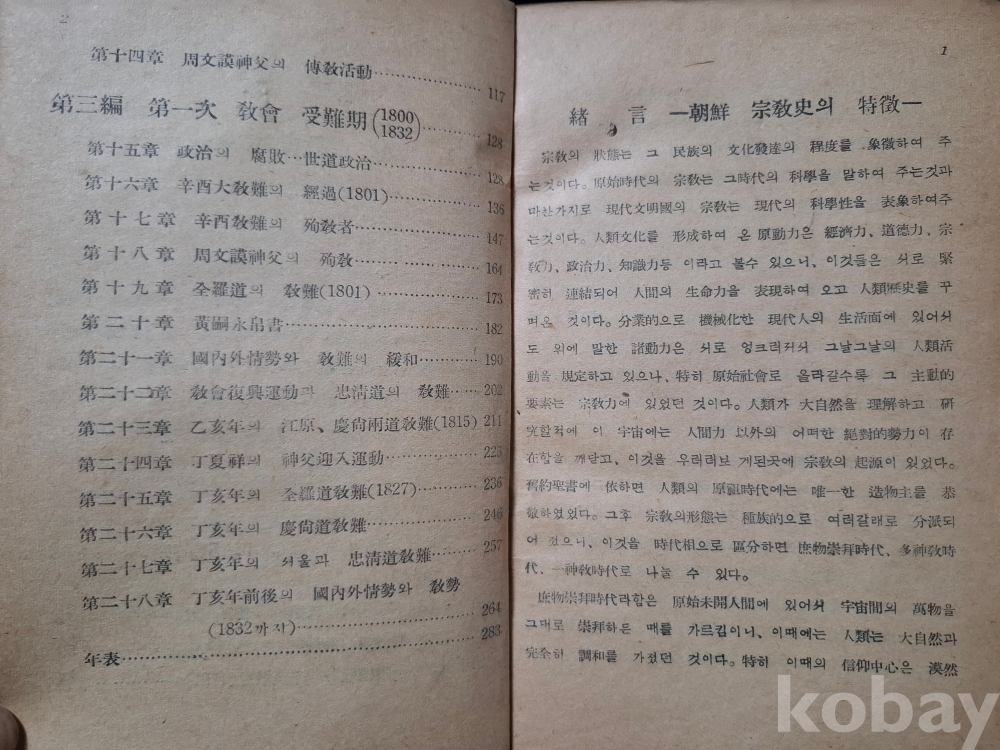 2
第十四章 周文謨神父의 傳敎活動……………117
第三編 第一次 敎會 受難期(1800 1832)……128
第十五章 政治의 腐敗…世道政治……………128
第十六章 辛酉大敎難의 經過(1801)……………136
第十七章 辛酉敎難의 殉敎者……………147
第十八章 周文謨神父의 殉敎……………164
第十九章 全羅道의 敎難(1801)……………173
第二十章 黃嗣永帛書……………182
第二十一章 國內外情勢와 敎難의 緩和……190
第二十二章 敎會復興運動과 忠淸道의 敎難……202
第二十三章 乙亥年의 江原、慶尙兩道敎難(1815) 211
第二十四章 丁夏祥의 神父迎入運動……………225
第二十五章 丁亥年의 全羅道敎難(1827)……………236
第二十六章 丁亥年의 慶尙道敎難……………246
第二十七章 丁亥年의 서울과 忠淸道敎難……………257
第二十八章 丁亥年前後의 國內外情勢와 敎勢
(1832까지)……………264
年表……………283
1
緖 言 —朝鮮 宗敎史의 特徵—
宗敎의 狀態는 그 民族의 文化發達의 程度를 象徵하여 주
는것이다。原始時代의 宗敎는 그時代의 科學을 말하여 주는것과
마찬가지로 現代文明國의 宗敎는 現代의 科學性을 表象하여주
는것이다。人類文化를 形成하여 온 原動力은 經濟力、道德力、宗
敎力、政治力、知識力等 이라고 볼수 있으니、이것들은 서로 緊
密히 連結되어 人間의 生命力을 表現하여 오고 人類歷史를 꾸
며온 것이다。分業的으로 機械化한 現代人의 生活面에 있어서
도 위에 말한 諸動力은 서로 엉크러저서 그날그날의 人類活
動을 規定하고 있으나、特히 原始社會로 올라갈수록 그 主動的
要素는 宗敎力에 있었던 것이다。人類가 大自然을 理解하고 研
究할적에 이 宇宙에는 人間力 以外의 어떠한 絕對的勢力이 存
在함을 깨닫고、이것을 우러러보 게된곳에 宗敎의 起源이 있었다。
舊約聖書에 依하면 人類의 原祖時代에는 唯一한 造物主를 恭
敬하였었다。그후 宗敎의形態는 種族的으로 여러갈래로 分派되
어 젔으니、이것을 時代相으로 區分하면 庶物崇拜時代、多神敎時
代、一神敎時代로 나눌 수 있다。
庶物崇拜時代라함은 原始未開人間에 있어서 宇宙間의 萬物을
그대로 崇拜하든 때를 가르킴이니、이때에는 人類는 大自然과
完全히 調和를 가졌던 것이다。特히 이때의 信仰中心은 漠然
kobay